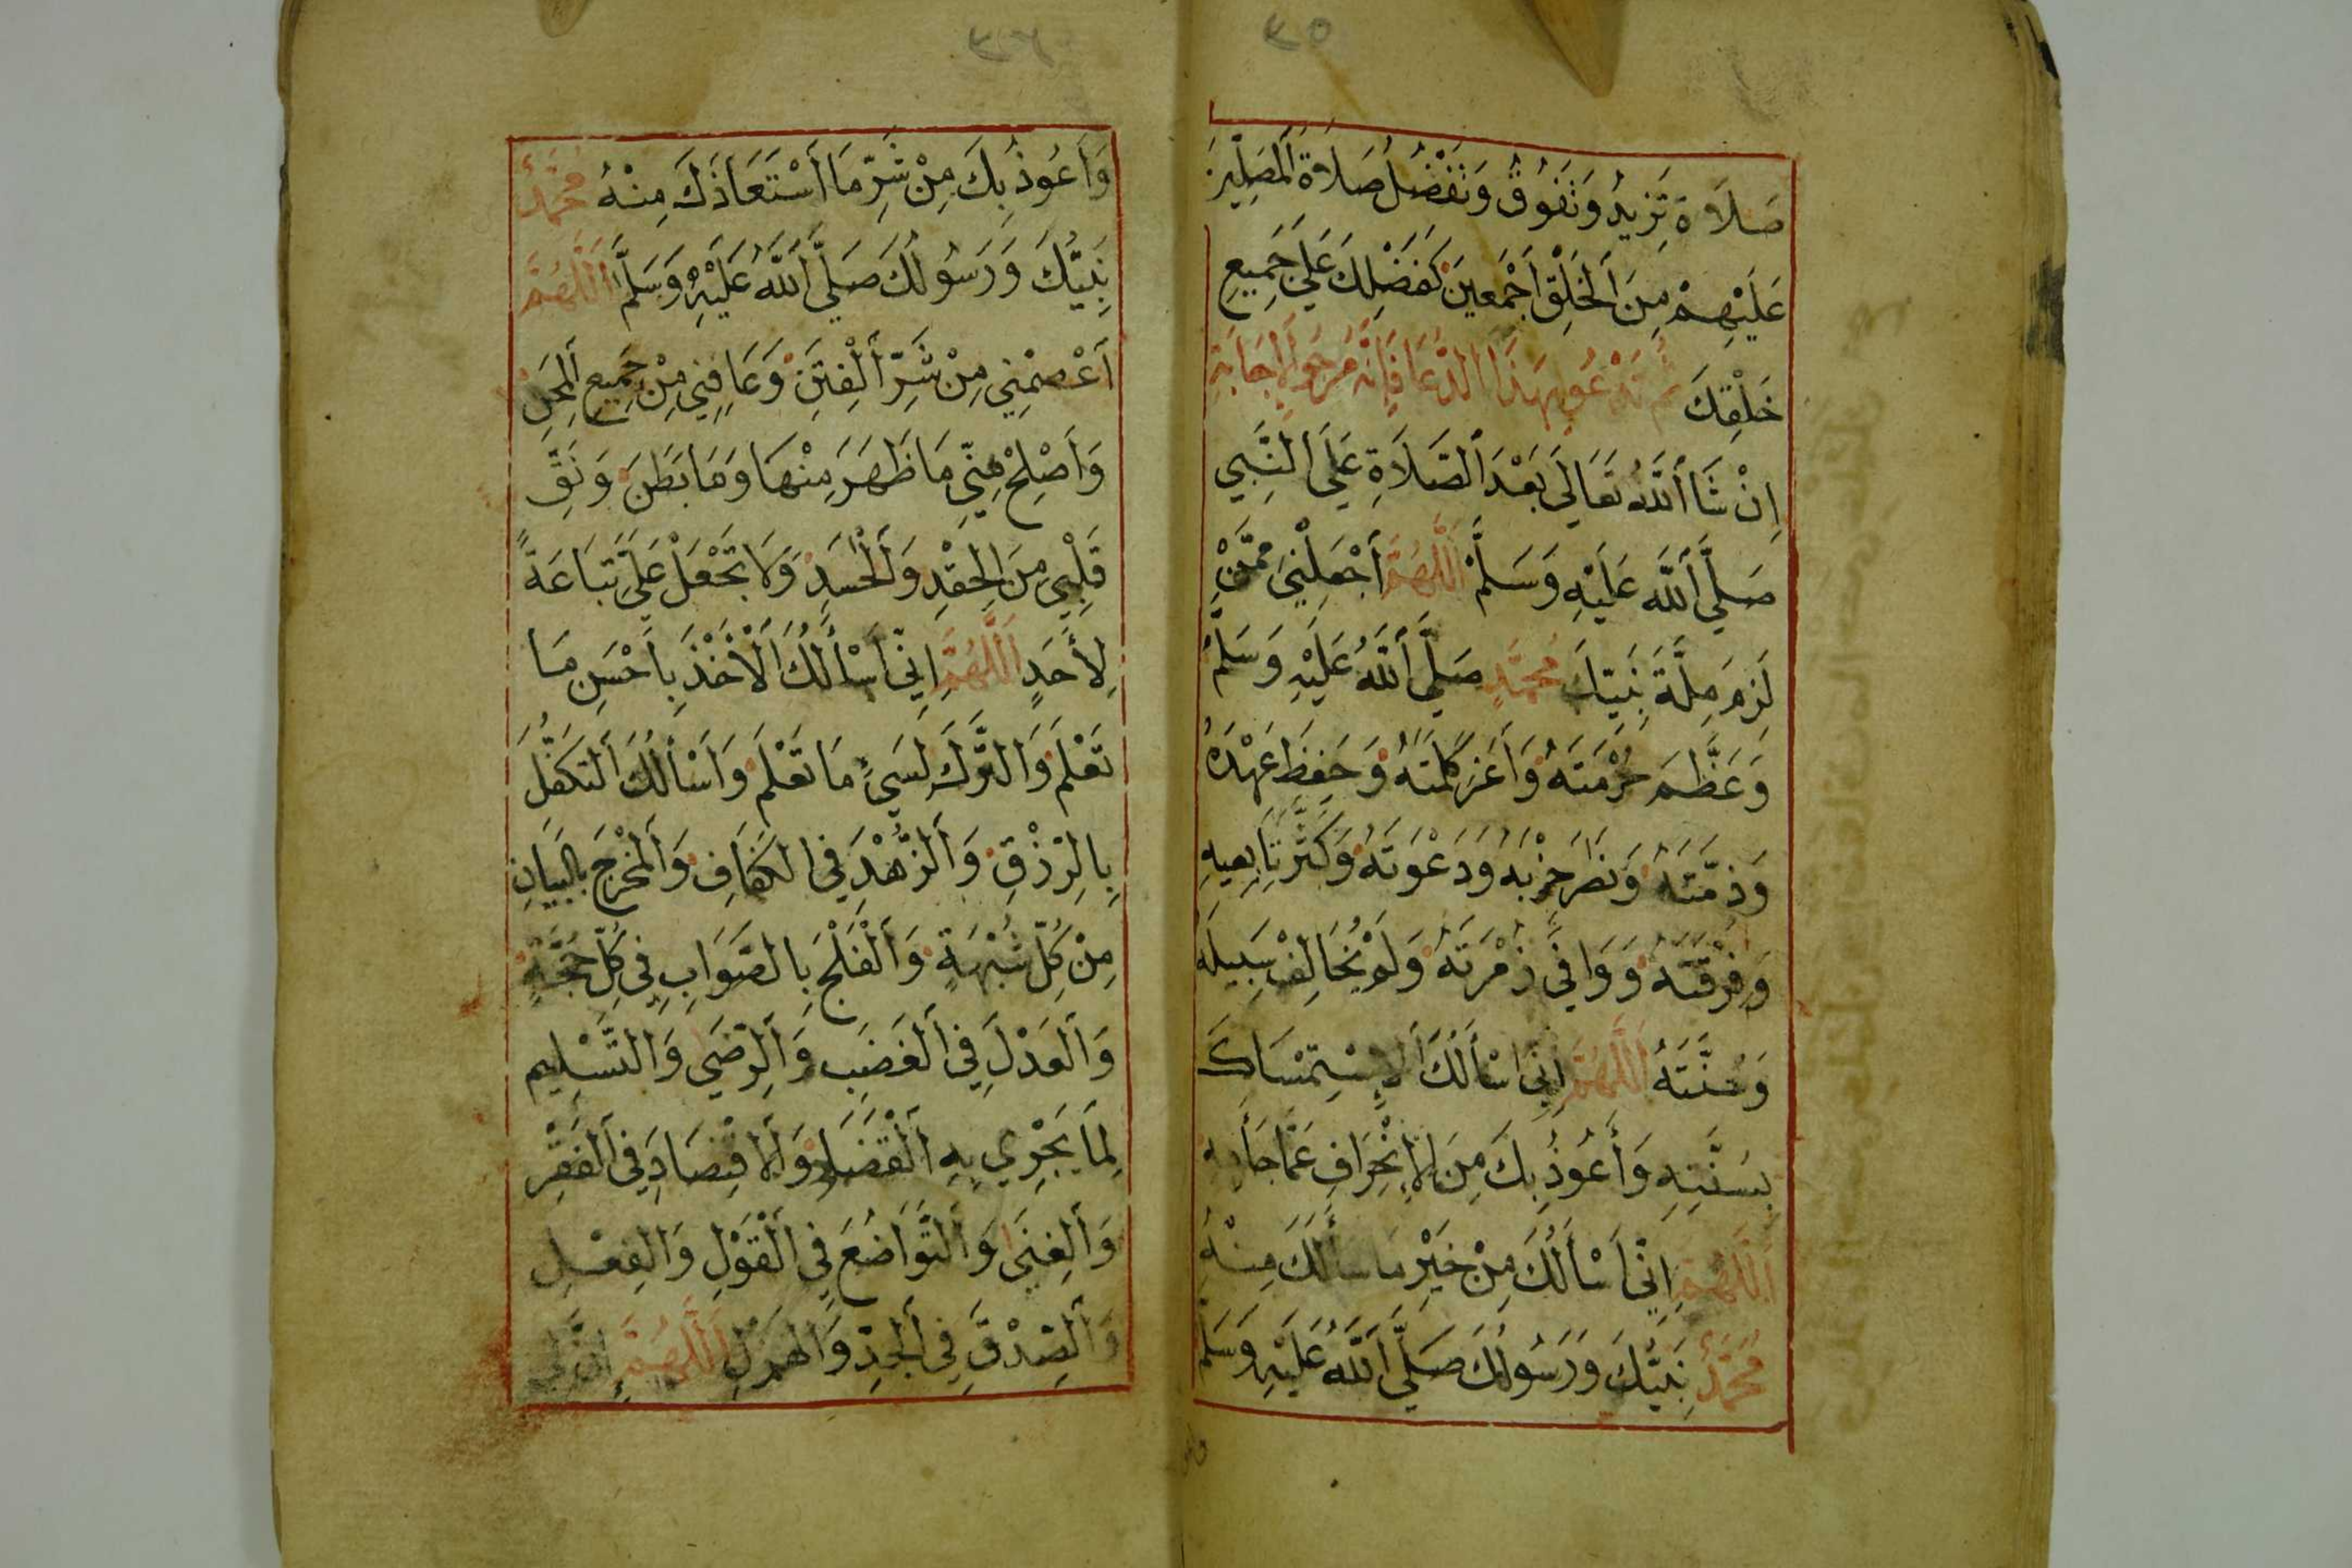 صَلَاةً تَزِيدُ وَتَفُوقُ وَتَفْضُلُ صَلَاةَ اَلْمُصَلِّينَ
عَلَيْهِمْ مِنَ اَلْخَلْقِ أَجْمَعِينَ كَفَضْلِكَ عَلَي جَمِيعِ
خَلْقِكَ ثُمَّ تَدْعُو بِهَذَا الدُّعَا فَإِنَّهُ مَرْجُوُّ اَلْإِجَابَةِ
اِنْ شَا اَللَّهُ تَعَالَي بَعْدَ اَلصَّلَاةِ عَلَي اَلنَّبِي
صَلَّي اَللَّه عَلَيْهِ وَسَلَّمْ اَللَّهُمَّ اَجْعَلْنِي مِمَّنْ
لَزِمَ مِلَّةَ نَبِيِّكَ مُحَمَّدٍ صَلَّي اَللَّهُ عَلَيْهِ وَسَلَّمْ
وَعَظَّمَ حُرْمَتَهُ وَاَعَزَّ كَلِمَتَهُ وَحَفِظَ عَهْدَهُ
وَذِمَّتَهُ وَنَصَرَ حِزْبَهُ وَدَعْوَتَهُ وَكَثَّرَ تَابِعِيهِ
وَفِرْقَتَهُ وَوَافَي زُمْرَتَهُ وَلَمْ يُخَالِفْ سَبِيلَهُ
وَسُنَّتَهُ اَللَّهُمَّ اِنِّي اَسْأَلُكَ اَلْإِسْتِمْسَاكَ
بِسُنَّتِهِ وَأَعُوذُ بِكَ مِنَ اَلْإِنْحِرَافِ عَمَّا جَأَ بِهِ
اَللَّهُمَّ اِنِّي اَسْأَلُكَ مِنْ خَيْرِ مَا سَأَلَكَ مِنْهُ
مُحَمَّدٌ نَبِيُّكَ وَرَسُولُكَ صَلَّي اَللَّهُ عَلَيْهِ وَسَلَّمْ
وَاَعُوذُ بِكَ مِنْ شَرِّ مَا اَسْتَعَاذَكَ مِنْهُ مُحَمَّدٌ
نَبِيُّكَ وَرَسُولُكَ صَلَّي اَللَّهُ عَلَيْهِ وَسَلَّمْ اَللَّهُمَّ
اَعْصِمْنِي مِنْ شَرِّ اَلْفِتَنِ وَعَافِنِي مِنْ جَمِيعِ اَلْمِحَنِ
وَاَصْلِحْ مِنِّي مَا ظَهَرَ مِنْهَا وَمَا بَطَنَ وَنَقِّ
قَلْبِي مِنَ اَلْحِقْدِ وَاَلْحَسَدِ وَلَا تَجْعَلْ عَلَيَّ تَبَاعَةً
لِأَحَدٍ اَللَّهُمَّ اِنِّي اَسْأَلُكَ اَلْأَخْذَ بِاَحْسَنِ مَا
تَعْلَمُ وَاَلتَّرْكَ لِسَيِّءِ مَا تَعْلَمُ وَاَسْأَلُكَ اَلتَّكَفُّلَ
بِالرِّزْقِ وَاَلزُّهْدَ فِي الكَفَافِ وَاَلْمَخْرَجَ بِالبَيَانِ
مِنْ كُلِّ شُبْهَةٍ وَاَلْفَلْجَ بِالصَّوَابِ فِي كُلِّ حُجَّةٍ
وَاَلْعَدْلَ فِي اَلْغَضَبِ وَاَلرِّضَي وَالتَّسْلِيم
لِمَا يَجْرِي بِهِ اَلْقَضَاء وَاَلْاقْتِصَادَ فِي اَلْفَقْرِ
وَاَلْغِنَي وَاَلتَّوَاضُعَ فِي اَلْقَوْلِ وَالْفِعْلِ
وَاَلصِّدْقَ فِي اَلْجِدِّ وَاَلْهَزْلِ اَللَّهُمَّ اِنَّ لِي